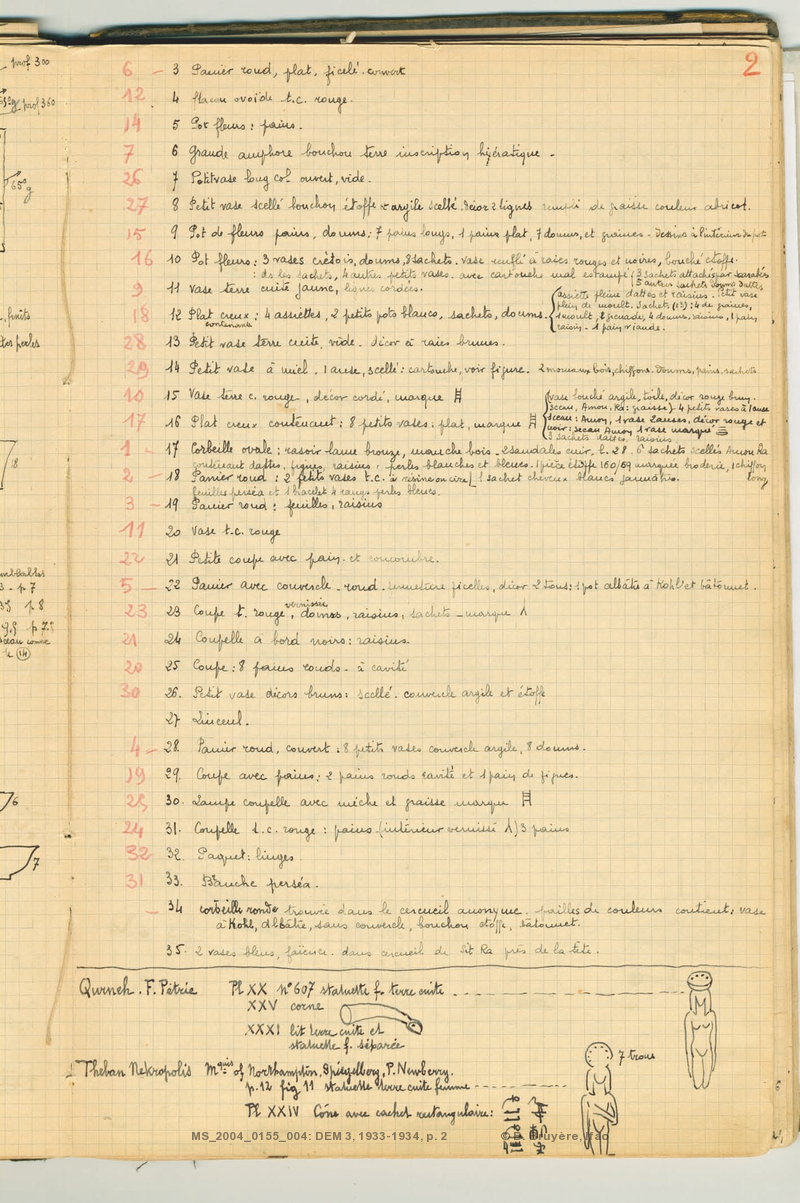 2
prof 300
prof 360
6 – 3 Panier rond, plat, ficelé. couvert
12. 4 flacon ovoïde t.c. rouge.
14 5 Pot fleurs : pains.
7 6 Grande amphore bouchon terre inscription hiératique –
26 7 Petit vase long col ouvert, vide.
27 8 Petit vase scellé bouchon étoffe et argile scellé. décor 2 lignes rempli de graisse couleur abricot.
15 9 Pot de fleurs pains, doums : 7 pains longs, 1 pains plat, 7 doums, et graines – Dessins à l'intérieur du pot
16 10 Pot fleurs : 3 vases crétois, doums, 8 sachets. vase renflé à raies rouges et noires, bouché étoffe.
: ds les sachets, 4 autres petits vases. avec cartouche mal estampé (3 sachets attachés par scarabés
5 autres sachets doums dattes
9 11 Vase terre cuite jaune, lignes cordées.
assiette pleine dattes et raisins. Petit vase
18 12 Plat creux : 4 assiettes, 2 petits pots blancs, sachets, doums.
contenant
28 13 Petit vase terre cuite, vide. décor à raies brunes.
29 14 Petit vase à miel. 1 anse, scellé : cartouche, voir figure. 2 morceaux bois, chiffons. Doums, pains, sachets
10 15 Vase terre c. rouge, décor cordé, marque
vase bouché argile, toile, décor rouge brun.
sceau, Amon, Râ : graisse). 4 petits vases à 1 anse
17 16 Plat creux contenant : 8 petits vases : plat, marque
sceau : Amon, 1 vase 2 anses, décor rouge et
noir : sceau Amon, 1 vase marqué
3 sachets dattes, raisins
1 – 17 Corbeille ovale : rasoir lame bronze, manche bois – 2 sandales cuir, l. 28. 6 sachets scellés Amon Ra
contenant dattes, figues, raisins. perles blanches et bleues. 1 pièce étoffe 160/69 marquée broderie, 1 chiffon
long
2 – 18 Panier rond : 2 petits vases t.c. (à résine ou cire) 1 sachet cheveux blancs jaunâtres.
feuilles perséa et 1 bracelet 4 rangs perles bleues.
3 – 19 Panier rond : feuilles, raisins
11 20 Vase t.c. rouge
22 21 Petite coupe avec pain. et concombre.
5 – 22 Panier avec couvercle – rond – fermeture ficelles, décor 2 tons : 1 pot albâtre à Kohl et bâtonnet.
23 23 Coupe t. rouge vernissée, doums, raisins, sachets – marque Λ
21 24 Coupelle à bord noirs : raisins.
20 25 Coupe : 8 pains ronds – à cavité
30 26. Petit vase décors bruns : scellé. couvercle argile et étoffe
27 Linceul.
4 – 28. Panier rond, couvert : 8 petits vases couvercle argile, 8 doums.
19 29. Coupe avec pains : 2 pains ronds cavité et 1 pain de figues.
25 30. Lampe coupelle avec mèche et graisse marque
24 31. Coupelle t.c. rouge : pains. (intérieur vernissé Λ) 3 pains
32 32. Paquet : linges
31 33. Branche perséa.
– 34 corbeille ronde trouvée dans le cercueil anonyme. pailles de couleurs contient, vase
à Kohl, albâtre, sans couvercle, bouchon étoffe, bâtonnet.
35. 2 vases bleus, faïence. dans cercueil de Sit Ra près de la tête.
Qurneh. F. Pétrie Pl XX n° 607 statuette f. terre cuite
XXV corne
XXXI lit terre cuite et
statuette f. séparée
7 trous
Theban Nekropolis Mquis of Northampton, Spiegelberg, P. Newberry.
p. 12 fig 11 statuette terre cuite femme
Pl XXIV Cône avec cachet rectangulaire :
MS_2004_0155_004: DEM 3, 1933-1934, p. 2